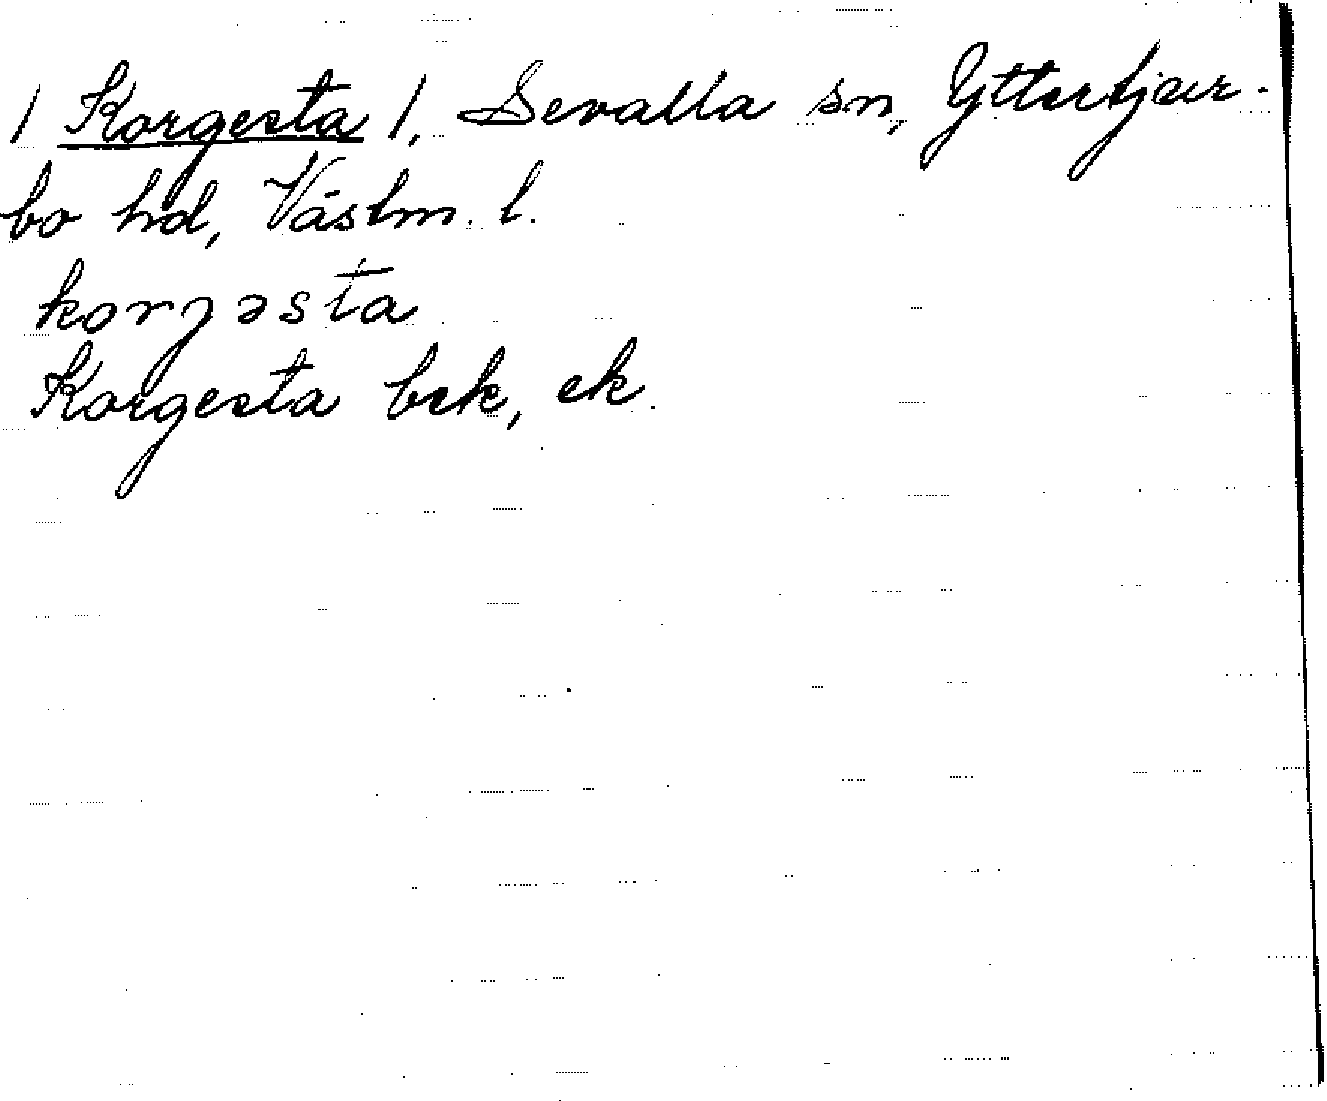 / Korgesta /, Sevalla sn, Yttertjur-
bo hd, Västm. l.
korȷəsta
Korgesta bek, ek.